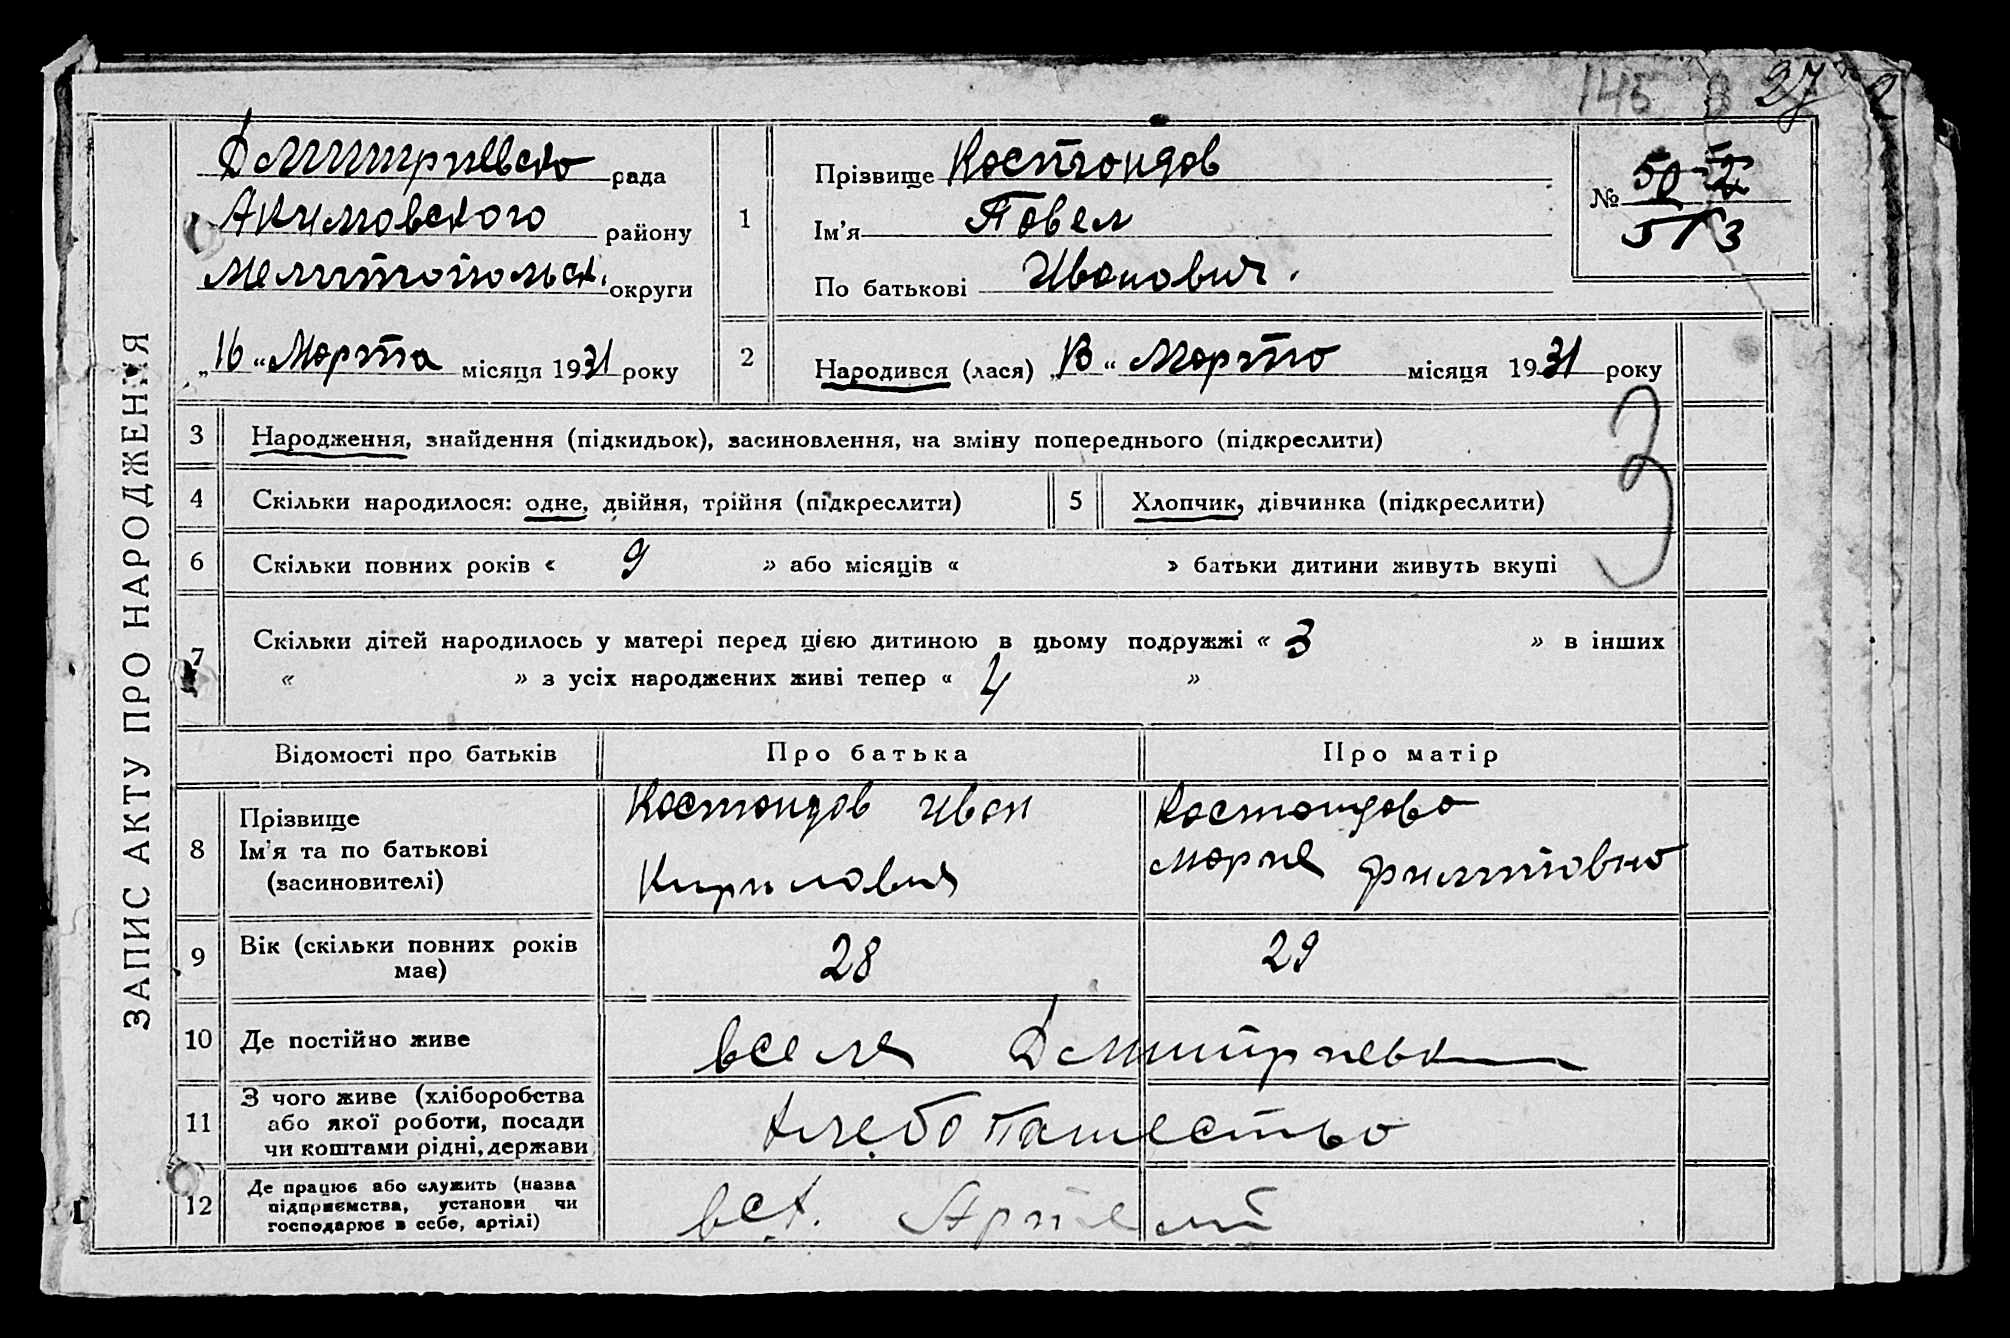 145 37
ЗАПИС АКТУ ПРО НАРОДЖЕННЯ
Дмитриевско рада
Акимовского району
Мелитопольск. округи
„16“ Марта місяця 1931 року
1
Прізвище Костондов
Ім’я Павел
По батькові Иванович.
№ 50
5/3
2
Народився (лася) „13“ Марта місяця 1931 року
3
3 Народження, знайдення (підкидьок), засиновлення, на зміну попереднього (підкреслити)
4 Скільки народилося: одне, двійня, трійня (підкреслити) 5 Хлопчик, дівчинка (підкреслити)
6 Скільки повних років « 9 » або місяців « » батьки дитини живуть вкупі
7 Скільки дітей народилось у матері перед цією дитиною в цьому подружжі « 3 » в інших
« » з усіх народжених живі тепер « 4 »
Відомості про батьків Про батька Про матір
8 Прізвище
Ім’я та по батькові
(засиновителі)
Костондов Иван
Кирилович
Костондова
Мария Филиповна
9 Вік (скільки повних років
має)
28 29
10 Де постійно живе
в селе Дмитриевк
11 З чого живе (хліборобства
або якої роботи, посади
чи коштами рідні, держави
хлебопашество
12 Де працює або служить (назва
підприємства, установи чи
господарює в себе, артілі)
в с.х. Артели